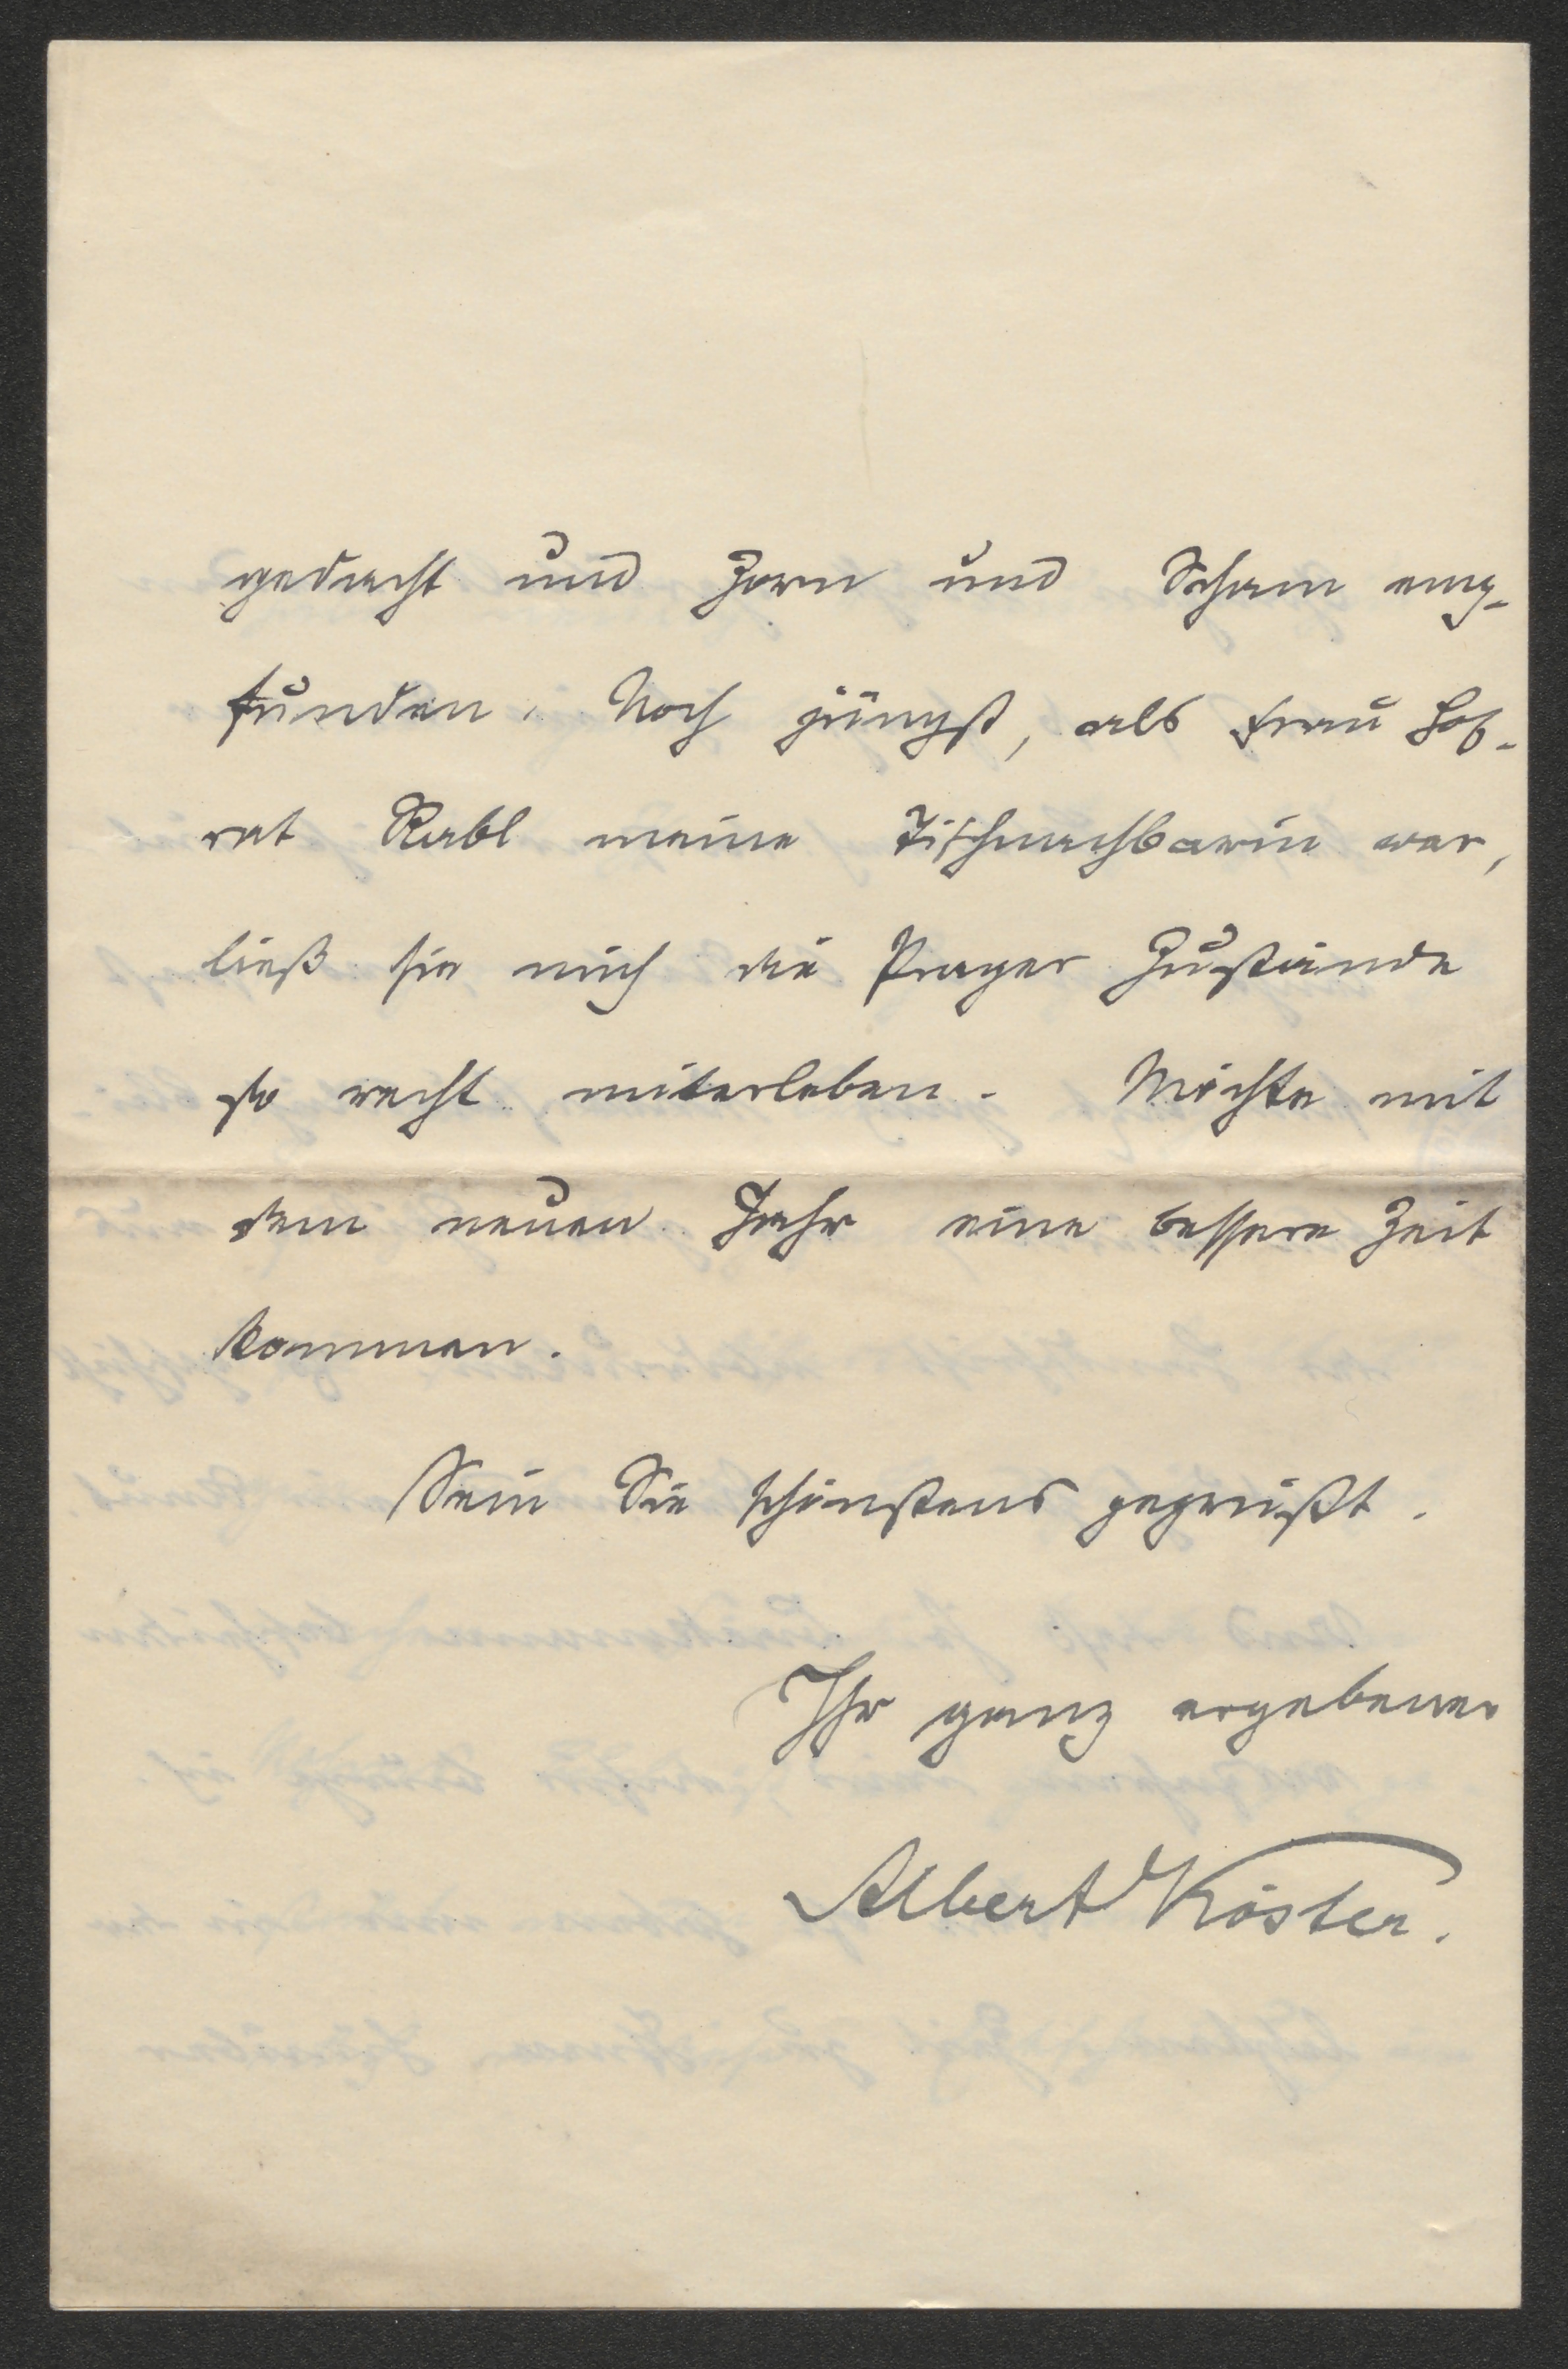 gedacht und Zorn und Scham emp-
funden. Noch jüngst, als Frau Hof-
rat Rabl meine Tischnachbarin war,
ließ sie mich die Prager Zustände
so recht miterleben. Möchte mit
dem neuen Jahr eine bessere Zeit
kommen.
Sein Sie schönstens gegrüßt.
Ihr ganz ergebener
Albert Köster.